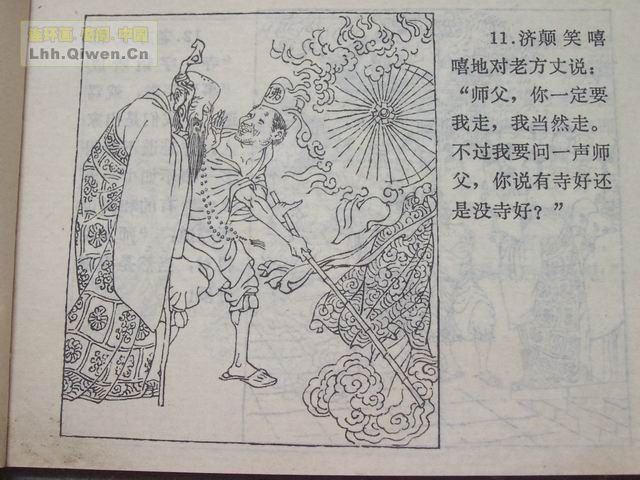 连环画·锲阁·中国
Lhh.Qiwen.Cn
佛
11.济颠笑嘻
嘻地对老方丈说：
“师父，你一定要
我走，我当然走。
不过我要问一声师
父，你说有寺好还
是没寺好？”